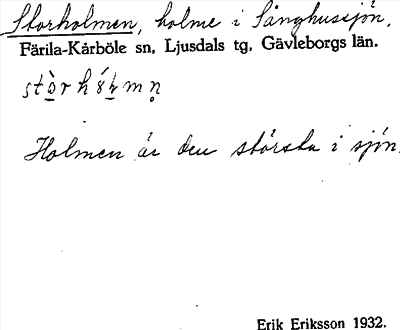 Storholmen, holme i Sånghussjön,
Färila-Kårböle sn, Ljusdals tg, Gävleborgs län.
Holmen är den största i sjön.
Erik Eriksson 1932.